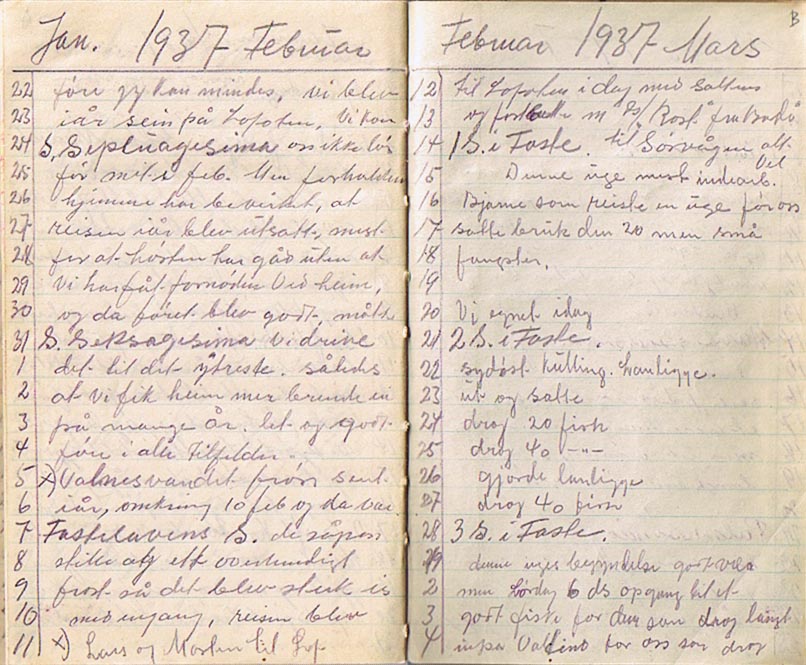 Jan. 1937 Februar
22 føre jeg kan mindes, vi blev
23 iår sein på Lofoten, Vi kom
24 S, Septuagesima oss ikke
25 før mit i feb. Men forholden
26 hjemme har bevirket, at
27 reisen iår blev utsatt, mest
28 for at høsten har gåd uten at
29 vi har fåt fornøden Ved heim,
30 og da føret blev godt, måtte
31 S. Seksagesima vi drive
1 det til det ytreste. således
2 at vi fik heim mer brende en
3 på mange år. let og godt
4 føre i alle Tilfelder.
5 x) Valnesvandet frøs sent
6 iår, omkring 10 feb og da var
7 Fastelavens S. de såpass
8 stille og ett
9 frost så det blev sterk is
10 med engang, reisen blev
11 x) Lars og Morten til Lof
Februar 1937 Mars
B
12 til Lofoten i dag med saltens
13 og m S/S "Røst" fra Bodø
14 1 S. i Faste. til Sørvågen alt
vel
15 Denne uge mest indearb.
16 Bjarne som reiste en uge før oss
17 satte bruk den 20 men små
18 fangster.
19
20 Vi egnet idag
21 2 S. i Faste.
22 sydøst kulling. Landligge.
23 ut og satte
24 drog 20 fisk
25 drog 40 -"-
26 gjorde landligge
27 drog 40 fisk
28 3 S. i Faste.
29 denne uges begyndelse godt
2 men Lørdag 6 ds opgang til et
3 godt fiske for dem som drog langt
4 inpå for oss som drog